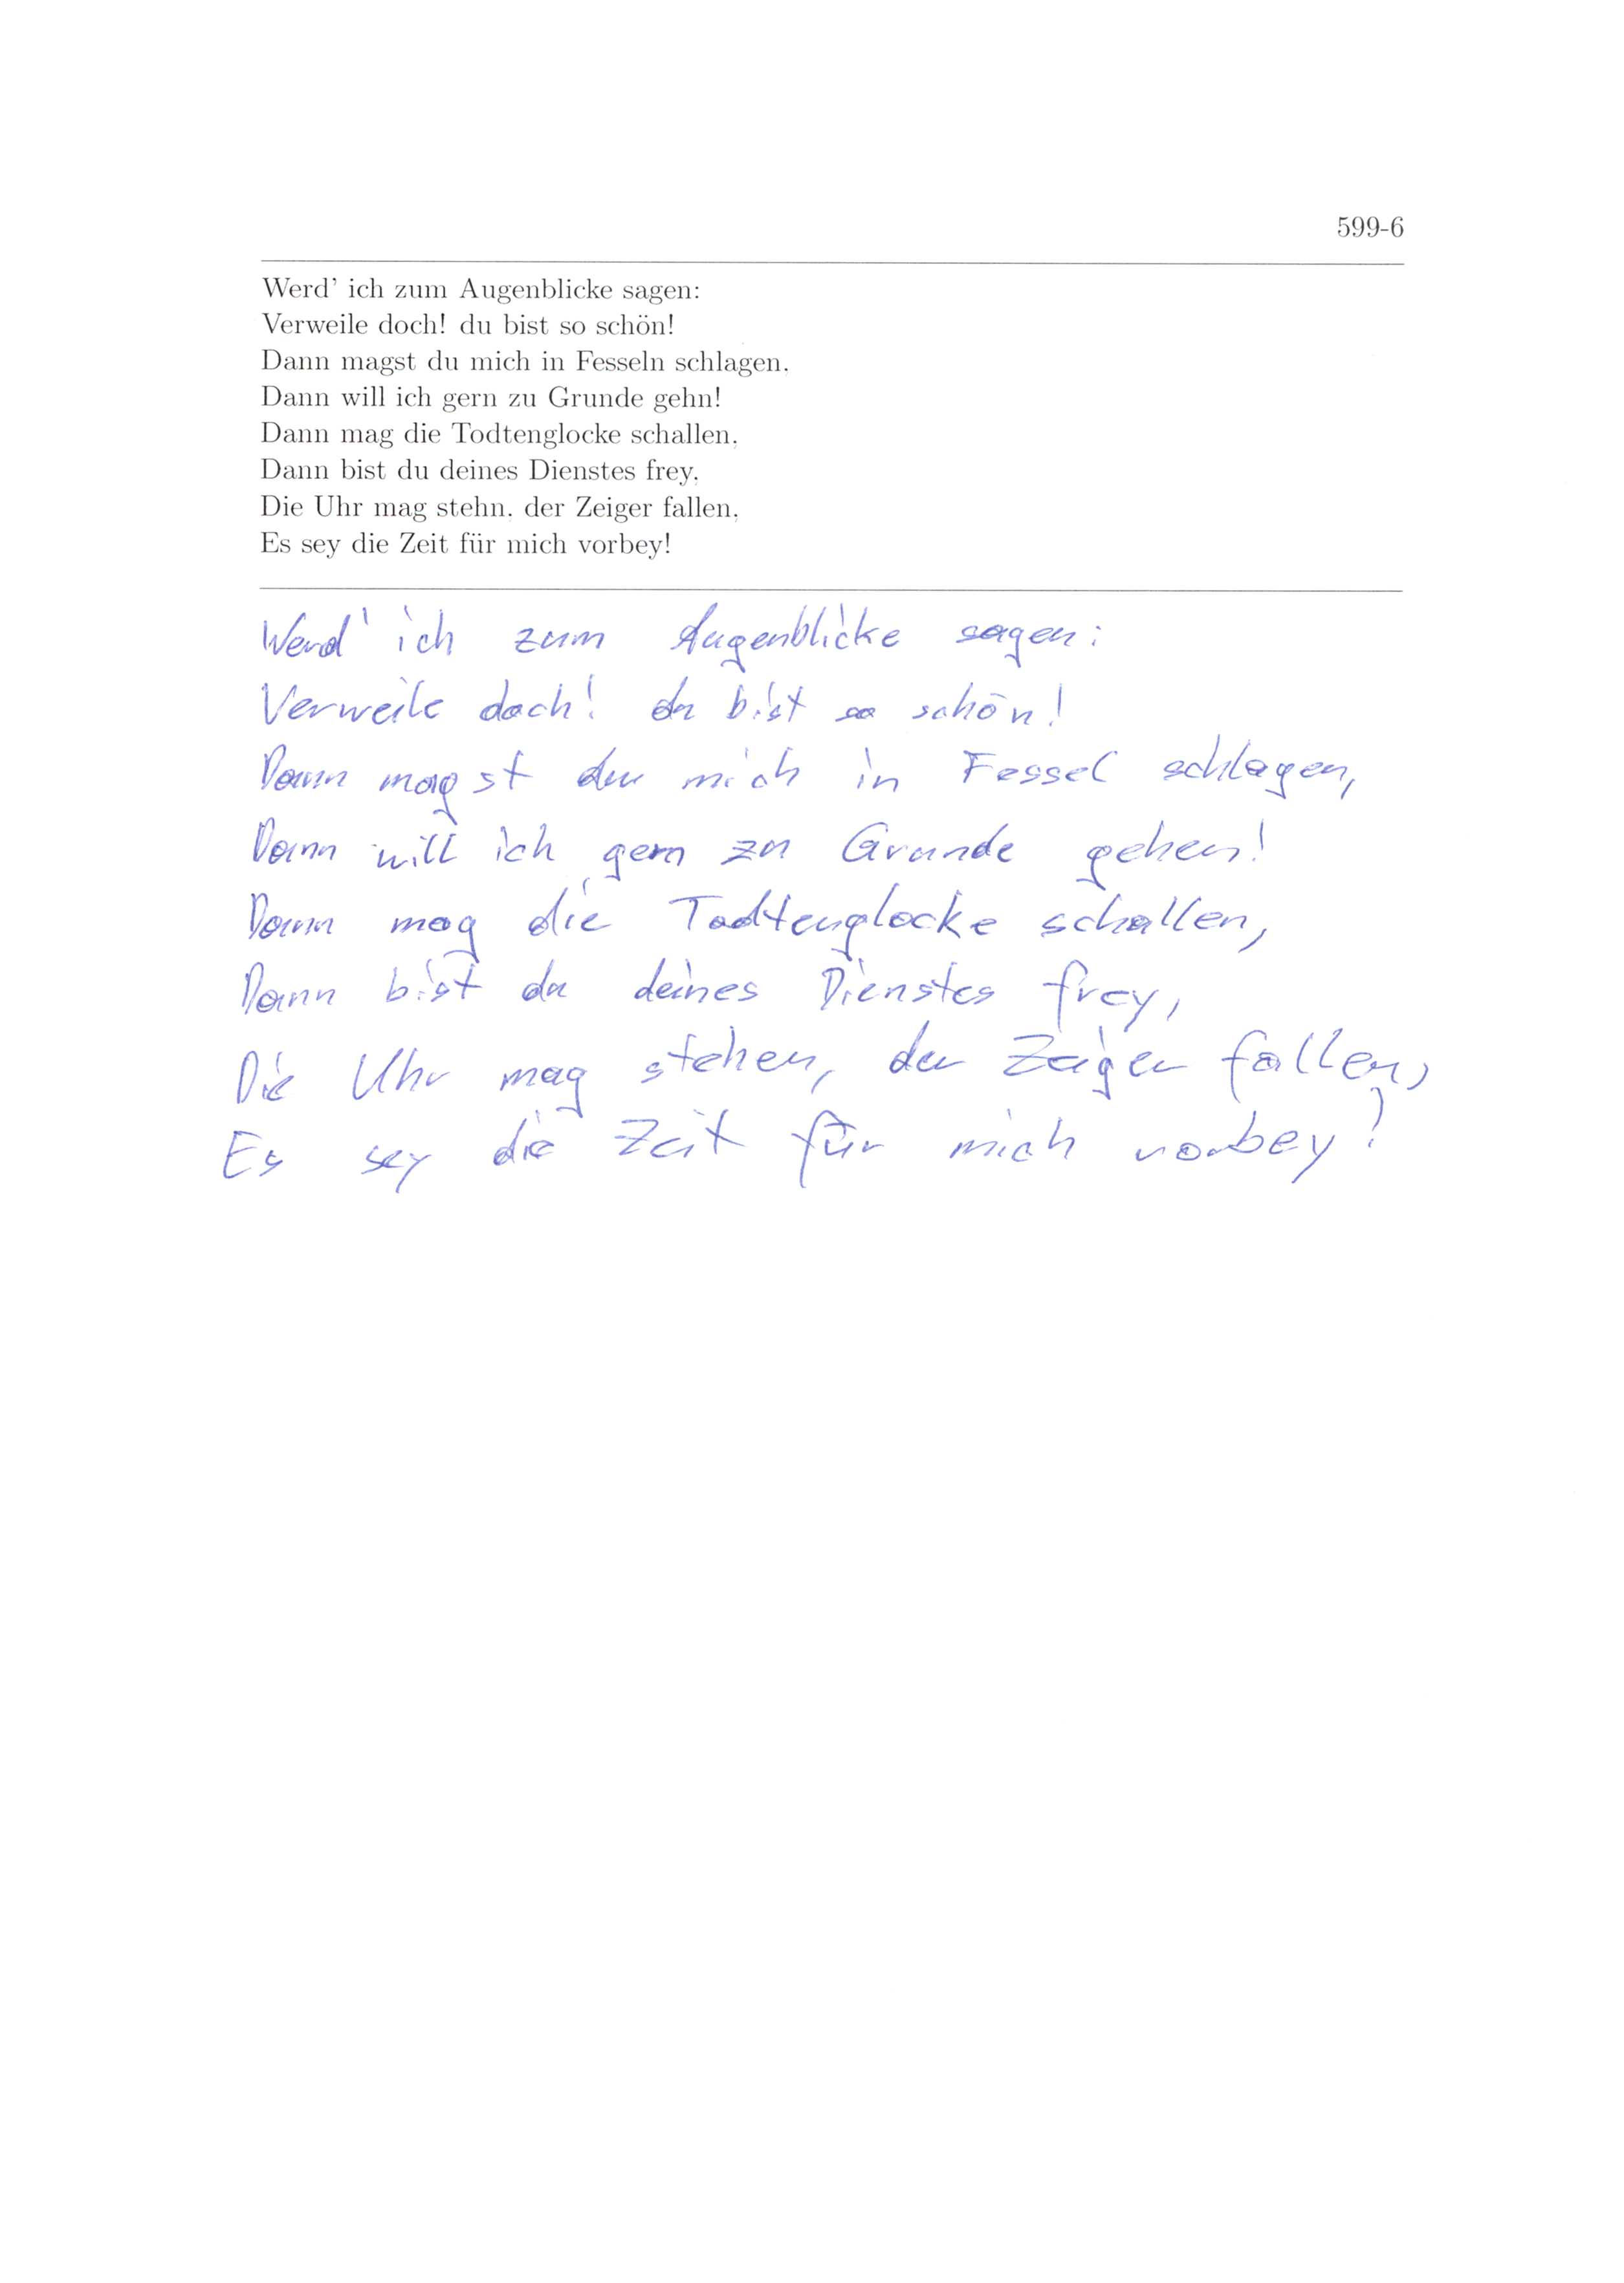 599-6
Werd' ich zum Augenblicke sagen:
Verweile doch! du bist so schön!
Dann magst du mich in Fesseln schlagen,
Dann will ich gern zu Grunde gehn!
Dann mag die Todtenglocke schallen,
Dann bist du deines Dienstes frey,
Die Uhr mag stehn, der Zeiger fallen,
Es sey die Zeit für mich vorbey!
Werd' ich zum Augenblicke sagen:
Verweile doch! du bist so schön!
Dann magst du mich in Fessel schlagen,
Dann will ich gern zu Grunde gehen!
Dann mag die Todtenglocke schallen,
Dann bist du deines Dienstes frey,
Die Uhr mag stehen, der Zeiger fallen,
Es sey die Zeit für mich vorbey!